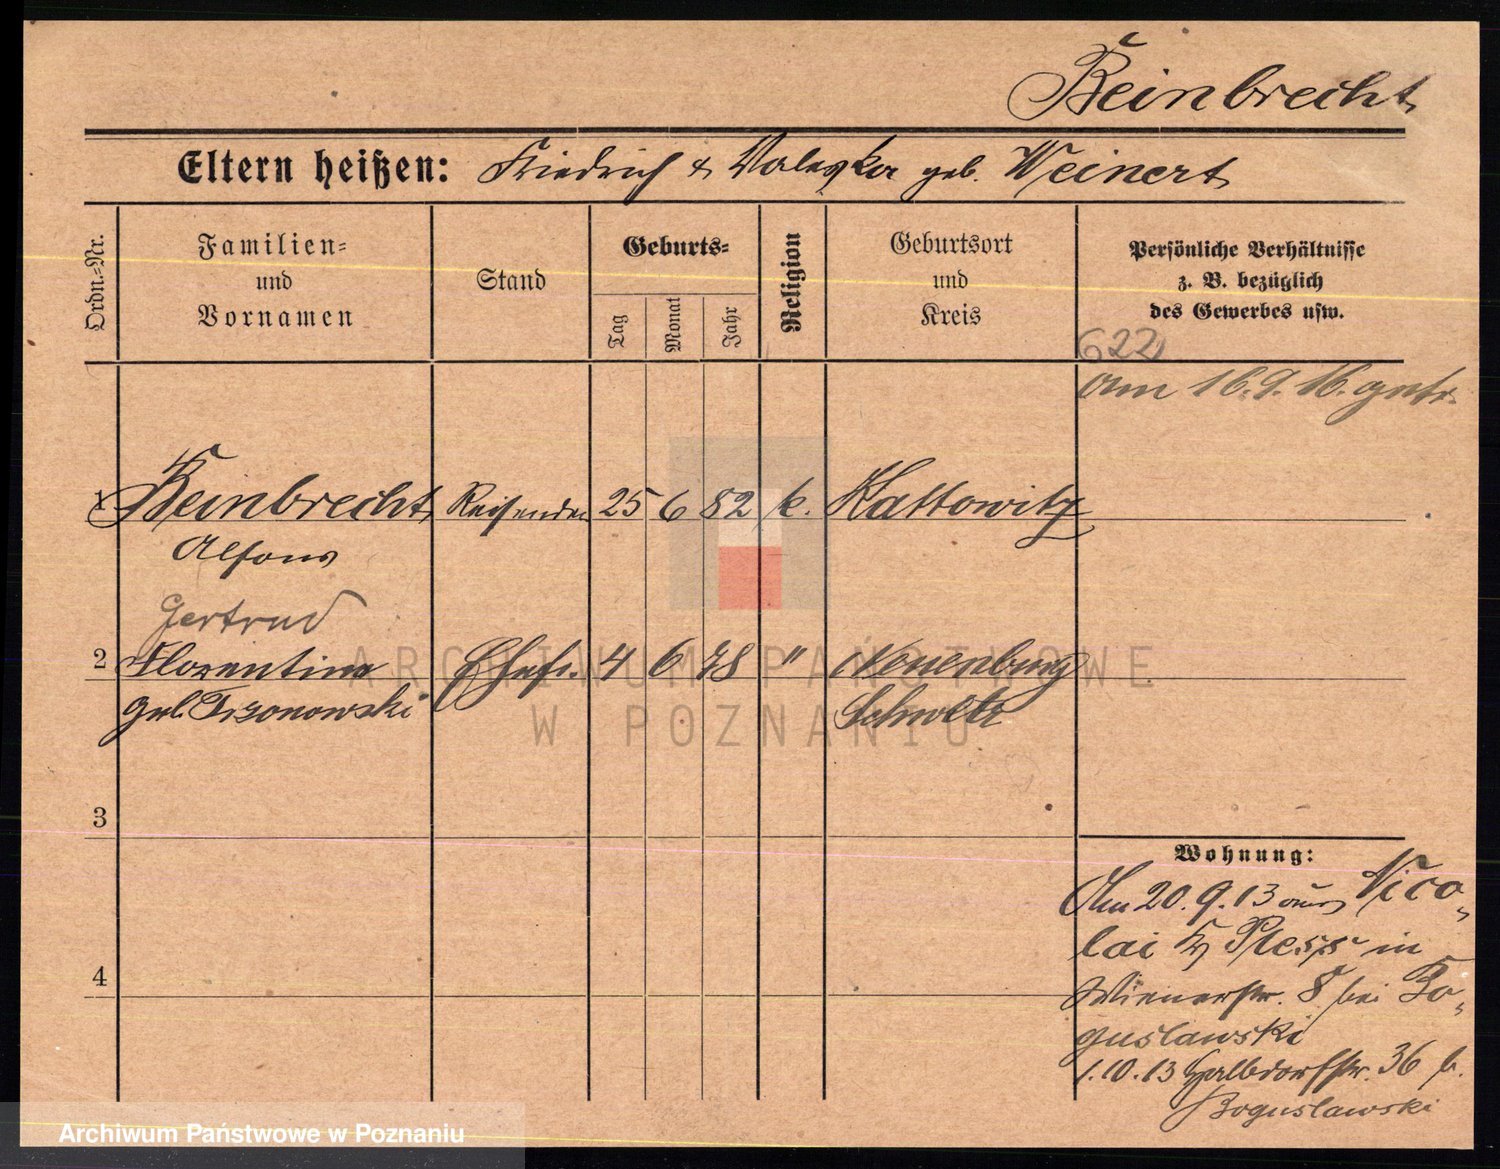 Beinbrecht
Eltern heißen: Friedrich & Valeska geb. Weinert
Ordn.-Nr.
Familien-
und
Vornamen
Stand
Geburts-
Tag
Monat
Jahr
Religion
Geburtsort
und
Kreis
Persönliche Verhältnisse
z. B. bezüglich
des Gewerbes usw.
622
am 16.9.16. getr.
1 Beinbrecht Reisender 25 6 82 k. Kattowitz
Alfons
Gertrud
2 Florentine Ehefr. 4 6 78 " Neuenburg
geb. Brzonowski
Schwetz
3
Wohnung:
Am 20.9.13 aus Nico-
lai Kr Pless in
4
Wienerstr. 8 bei Bo-
guslawski
1.10.13 Halbdorfstr. 36 b.
Boguslawski
ARCHIWUM PAŃSTWOWE
W POZNANIU
Archiwum Państwowe w Poznaniu